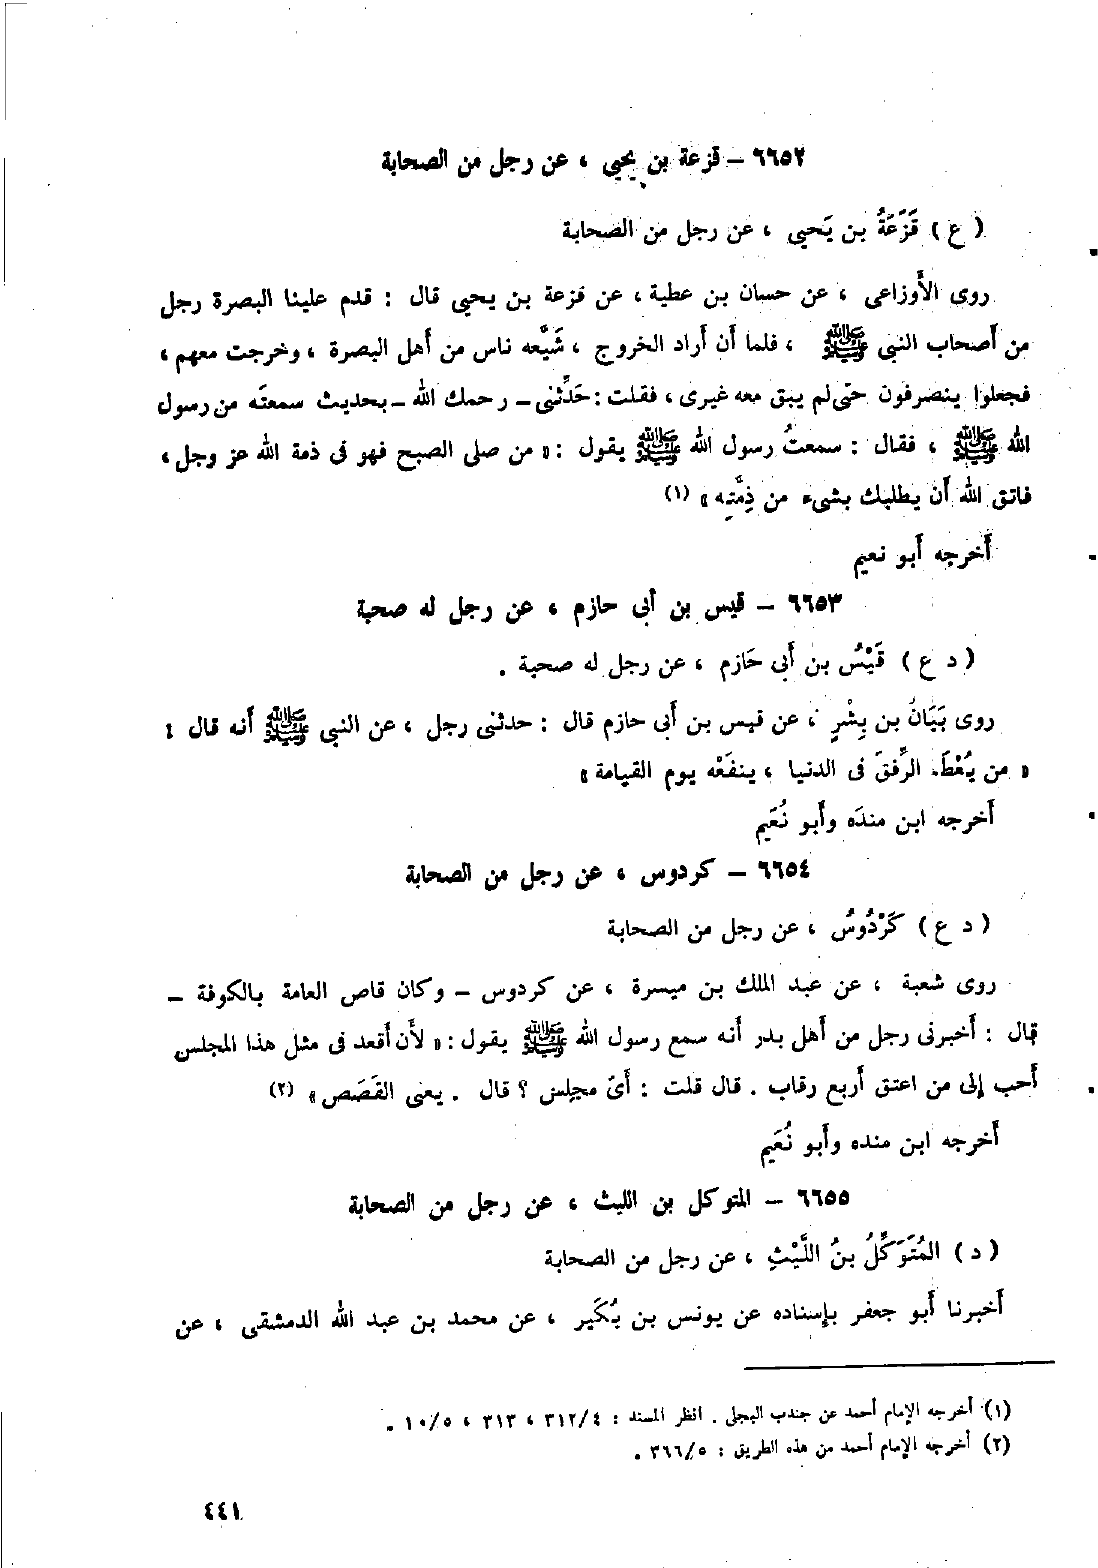 ٦٦٥٢ – قزعة بن يحيى ، عن رجل من الصحابة
( ع ) قَزَعَةُ بن يَحيى ، عن رجل من الصحابة
روى الأَوزاعى ، عن حسان بن عطية ، عن قزعة بن يحيى قال : قدم علينا البصرة رجل
من أَصحاب النبي ﷺ ، فلما أَن أَراد الخروج ، شَيَّعه ناس من أَهل البصرة ، وخرجت معهم ،
فجعلوا ينصرفون حتى لم يبق معه غيرى ، فقلت : حَدِّثنى – رحمك الله – بحديث سمعتَه من رسول
الله ﷺ ، فقال : سمعتُ رسول الله ﷺ يقول : « من صلى الصبح فهو فى ذمة الله عز وجل ،
فاتق الله أَن يطلبك بشىء من ذِمَّتِه » (١)
أَخرجه أَبو نعيم
٦٦٥٣ – قيس بن أبى حازم ، عن رجل له صحبة
( د ع ) قَيْسُ بن أَبى حَازم ، عن رجل له صحبة .
روى بَيَانُ بن بِشْرٍ ، عن قيس بن أَبى حازم قال : حدثنى رجل ، عن النبي ﷺ أَنه قال :
« من يُعْطَ الرِّفقَ فى الدنيا ، ينفَعْه يوم القيامة »
أَخرجه ابن مندَه وأَبو نُعَيم
٦٦٥٤ – كردوس ، عن رجل من الصحابة
( د ع ) كَرْدُوسُ ، عن رجل من الصحابة
روى شعبة ، عن عبد الملك بن ميسرة ، عن كردوس – وكان قاص العامة بالكوفة –
قال : أَخبرنى رجل من أَهل بدر أَنه سمع رسول الله ﷺ يقول : « لأَن أَقعد فى مثل هذا المجلس
أَحب إلى من اعتق أَربع رقاب . قال قلت : أَىّ مجلس ؟ قال . يعنى القَصَص » (٢)
أَخرجه ابن منده وأَبو نُعَيم
٦٦٥٥ – المتوكل بن الليث ، عن رجل من الصحابة
( د ) المُتَوَكِّلُ بنُ اللَّيْثِ ، عن رجل من الصحابة
أَخبرنا أَبو جعفر بإِسناده عن يونس بن بُكَير ، عن محمد بن عبد الله الدمشقى ، عن
(١) أخرجه الإمام أحمد عن جندب البجلى . انظر المسند : ٣١٢/٤ ، ٣١٣ ، ١٠/٥ .
(٢) أخرجه الإمام أحمد من هذه الطريق : ٣٦٦/٥ .
٤٤١